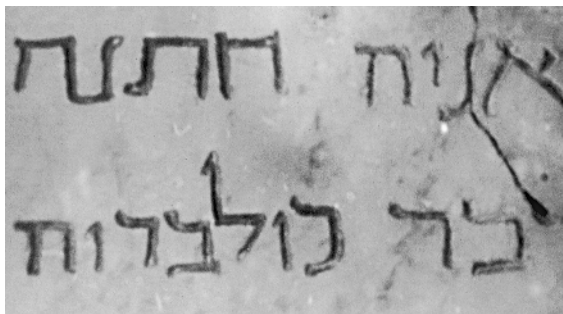 אניה חתנה
בר כולברוה